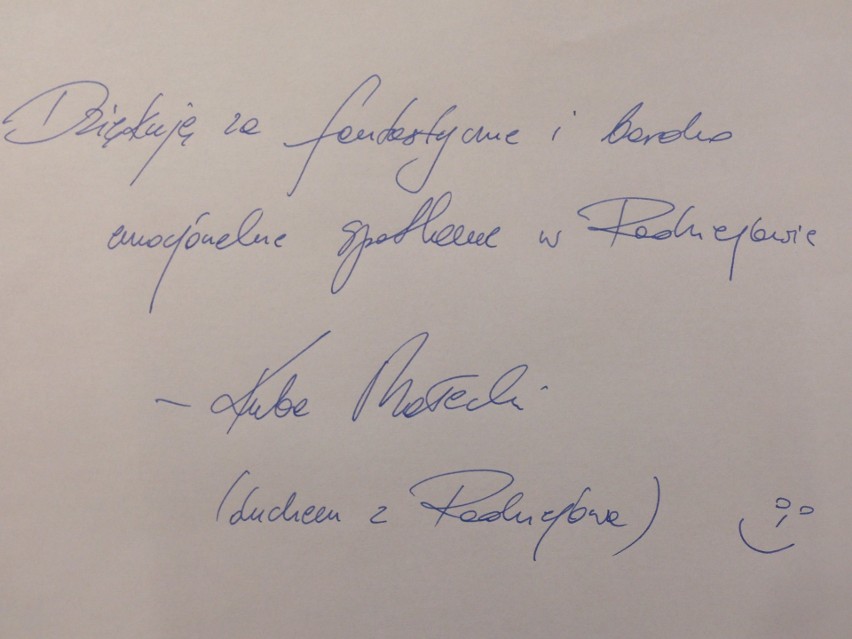 Dziękuję za fantastyczne i bardzo
emocjonalne spotkanie w Radziejowie
- Kuba Małecki
(duchem z Radziejowa)